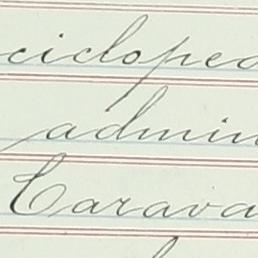 ciclope
admin
Carava